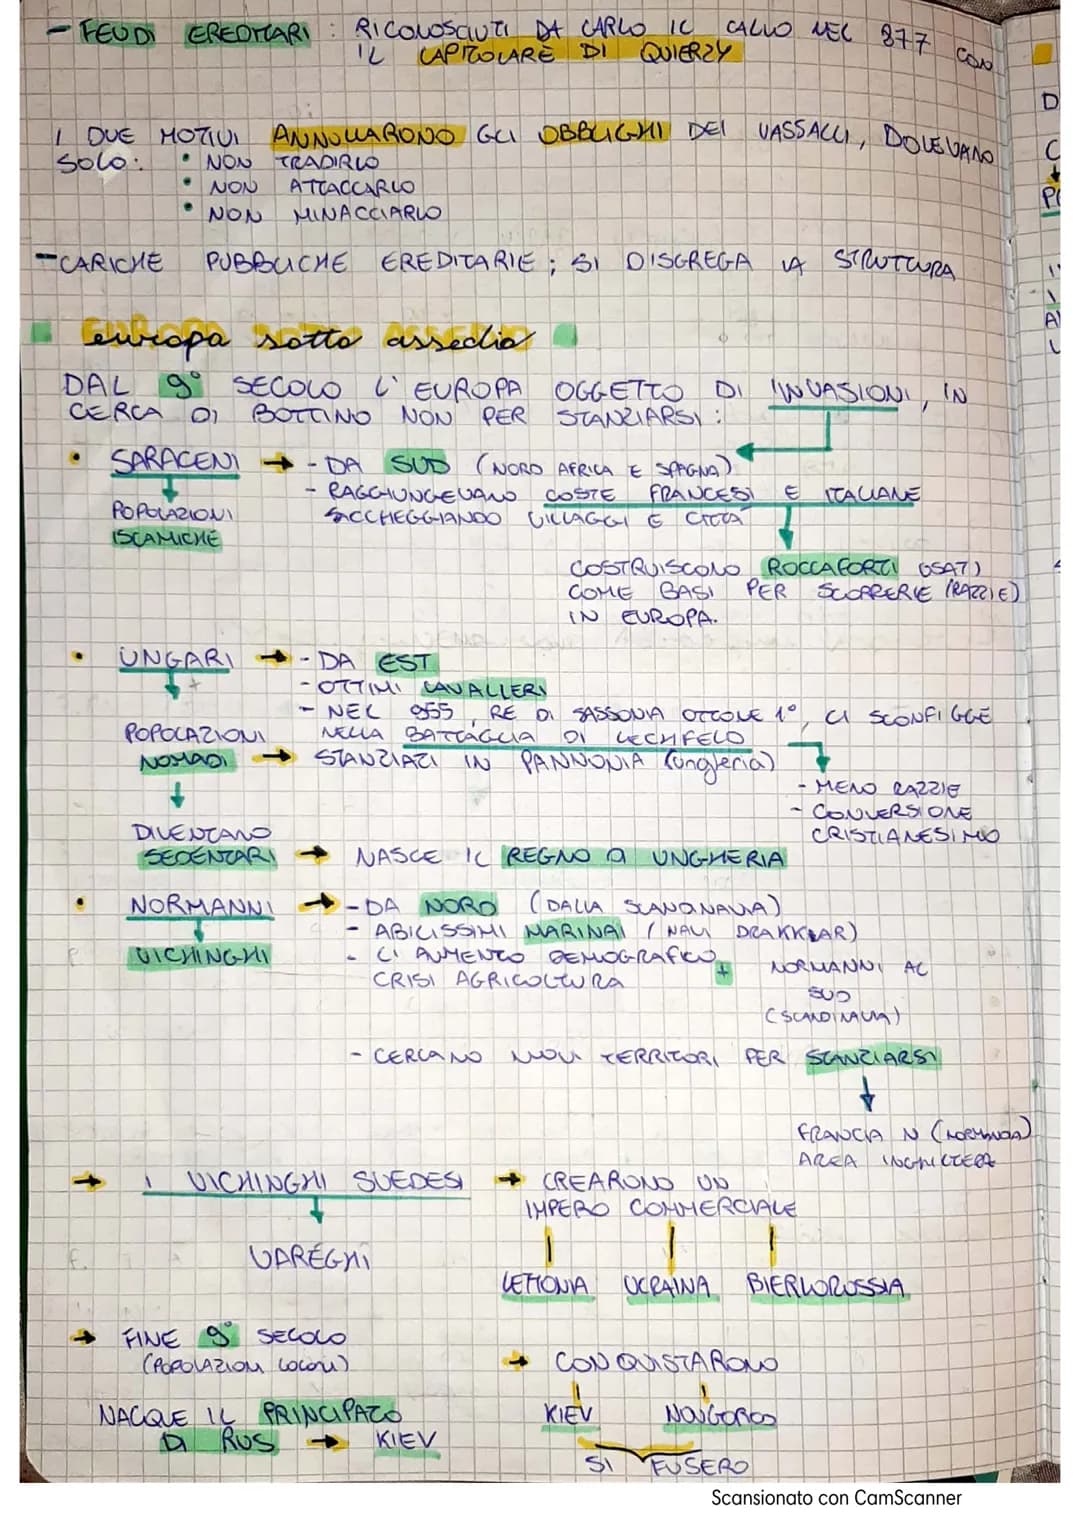 - FEUDI EREDITARI : RICONOSCIUTI DA CARLO IL CALVO NEL 877 CON
IL CAPITOLARE DI QUIERZY
I DUE MOTIVI ANNULLARONO GLI OBBLIGHI DEI VASSALLI, DOVEVANO
SOLO: • NON TRADIRLO
• NON ATTACCARLO
• NON MINACCIARLO
- CARICHE PUBBLICHE EREDITARIE; SI DISGREGA LA STRUTTURA
europa sotto assedio
DAL 9° SECOLO L'EUROPA OGGETTO DI INVASIONI, IN
CERCA DI BOTTINO NON PER STANZIARSI:
• SARACENI → - DA SUD (NORD AFRICA E SPAGNA)
- RAGGIUNGEVANO COSTE FRANCESI E ITALIANE
POPOLAZIONI SACCHEGGIANDO VILLAGGI E CITTÀ
ISLAMICHE
COSTRUISCONO ROCCAFORTI (USATI)
COME BASI PER SCORRERIE (RAZZIE)
IN EUROPA.
• UNGARI → - DA EST
- OTTIMI CAVALLERI
- NEL 955, RE DI SASSONIA OTTONE 1°, LI SCONFIGGE
POPOLAZIONI NELLA BATTAGLIA DI LECHFELD
NOMADI → STANZIATI IN PANNONIA (ungheria)
- MENO RAZZIE
- CONVERSIONE
DIVENTANO CRISTIANESIMO
SEDENTARI → NASCE IL REGNO D UNGHERIA
• NORMANNI → - DA NORD (DALLA SCANDINAVIA)
- ABILISSIMI MARINAI (NAVI DRAKKAR)
VICHINGHI - L'AUMENTO DEMOGRAFICO + NORMANNI AL
CRISI AGRICOLTURA SUD
(SCANDINAVIA)
- CERCANO NUOVI TERRITORI PER STANZIARSI
FRANCIA N (NORMANDIA)
AREA INGHILTERRA
→ I VICHINGHI SVEDESI → CREARONO UN
IMPERO COMMERCIALE
VARÉGHI
LETTONIA UCRAINA BIERLORUSSIA
→ FINE 9° SECOLO
(POPOLAZIONI LOCALI) → CONQUISTARONO
NACQUE IL PRINCIPATO KIEV NOVGOROD
DI RUS → KIEV
SI FUSERO
Scansionato con CamScanner